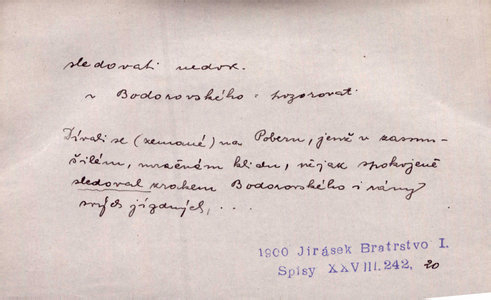 sledovati nedok.
v Bodorovského = pozorovat
Dívali se (zemané) na Poberu, jenž v zasmu-
šilém, mrzkém klidu, nějak spokojeně
sledoval zrakem Bodorovského i rány
svých jízdných, . . .
1900 Jirásek Bratrstvo I.
Spisy XXVIII.242, 20